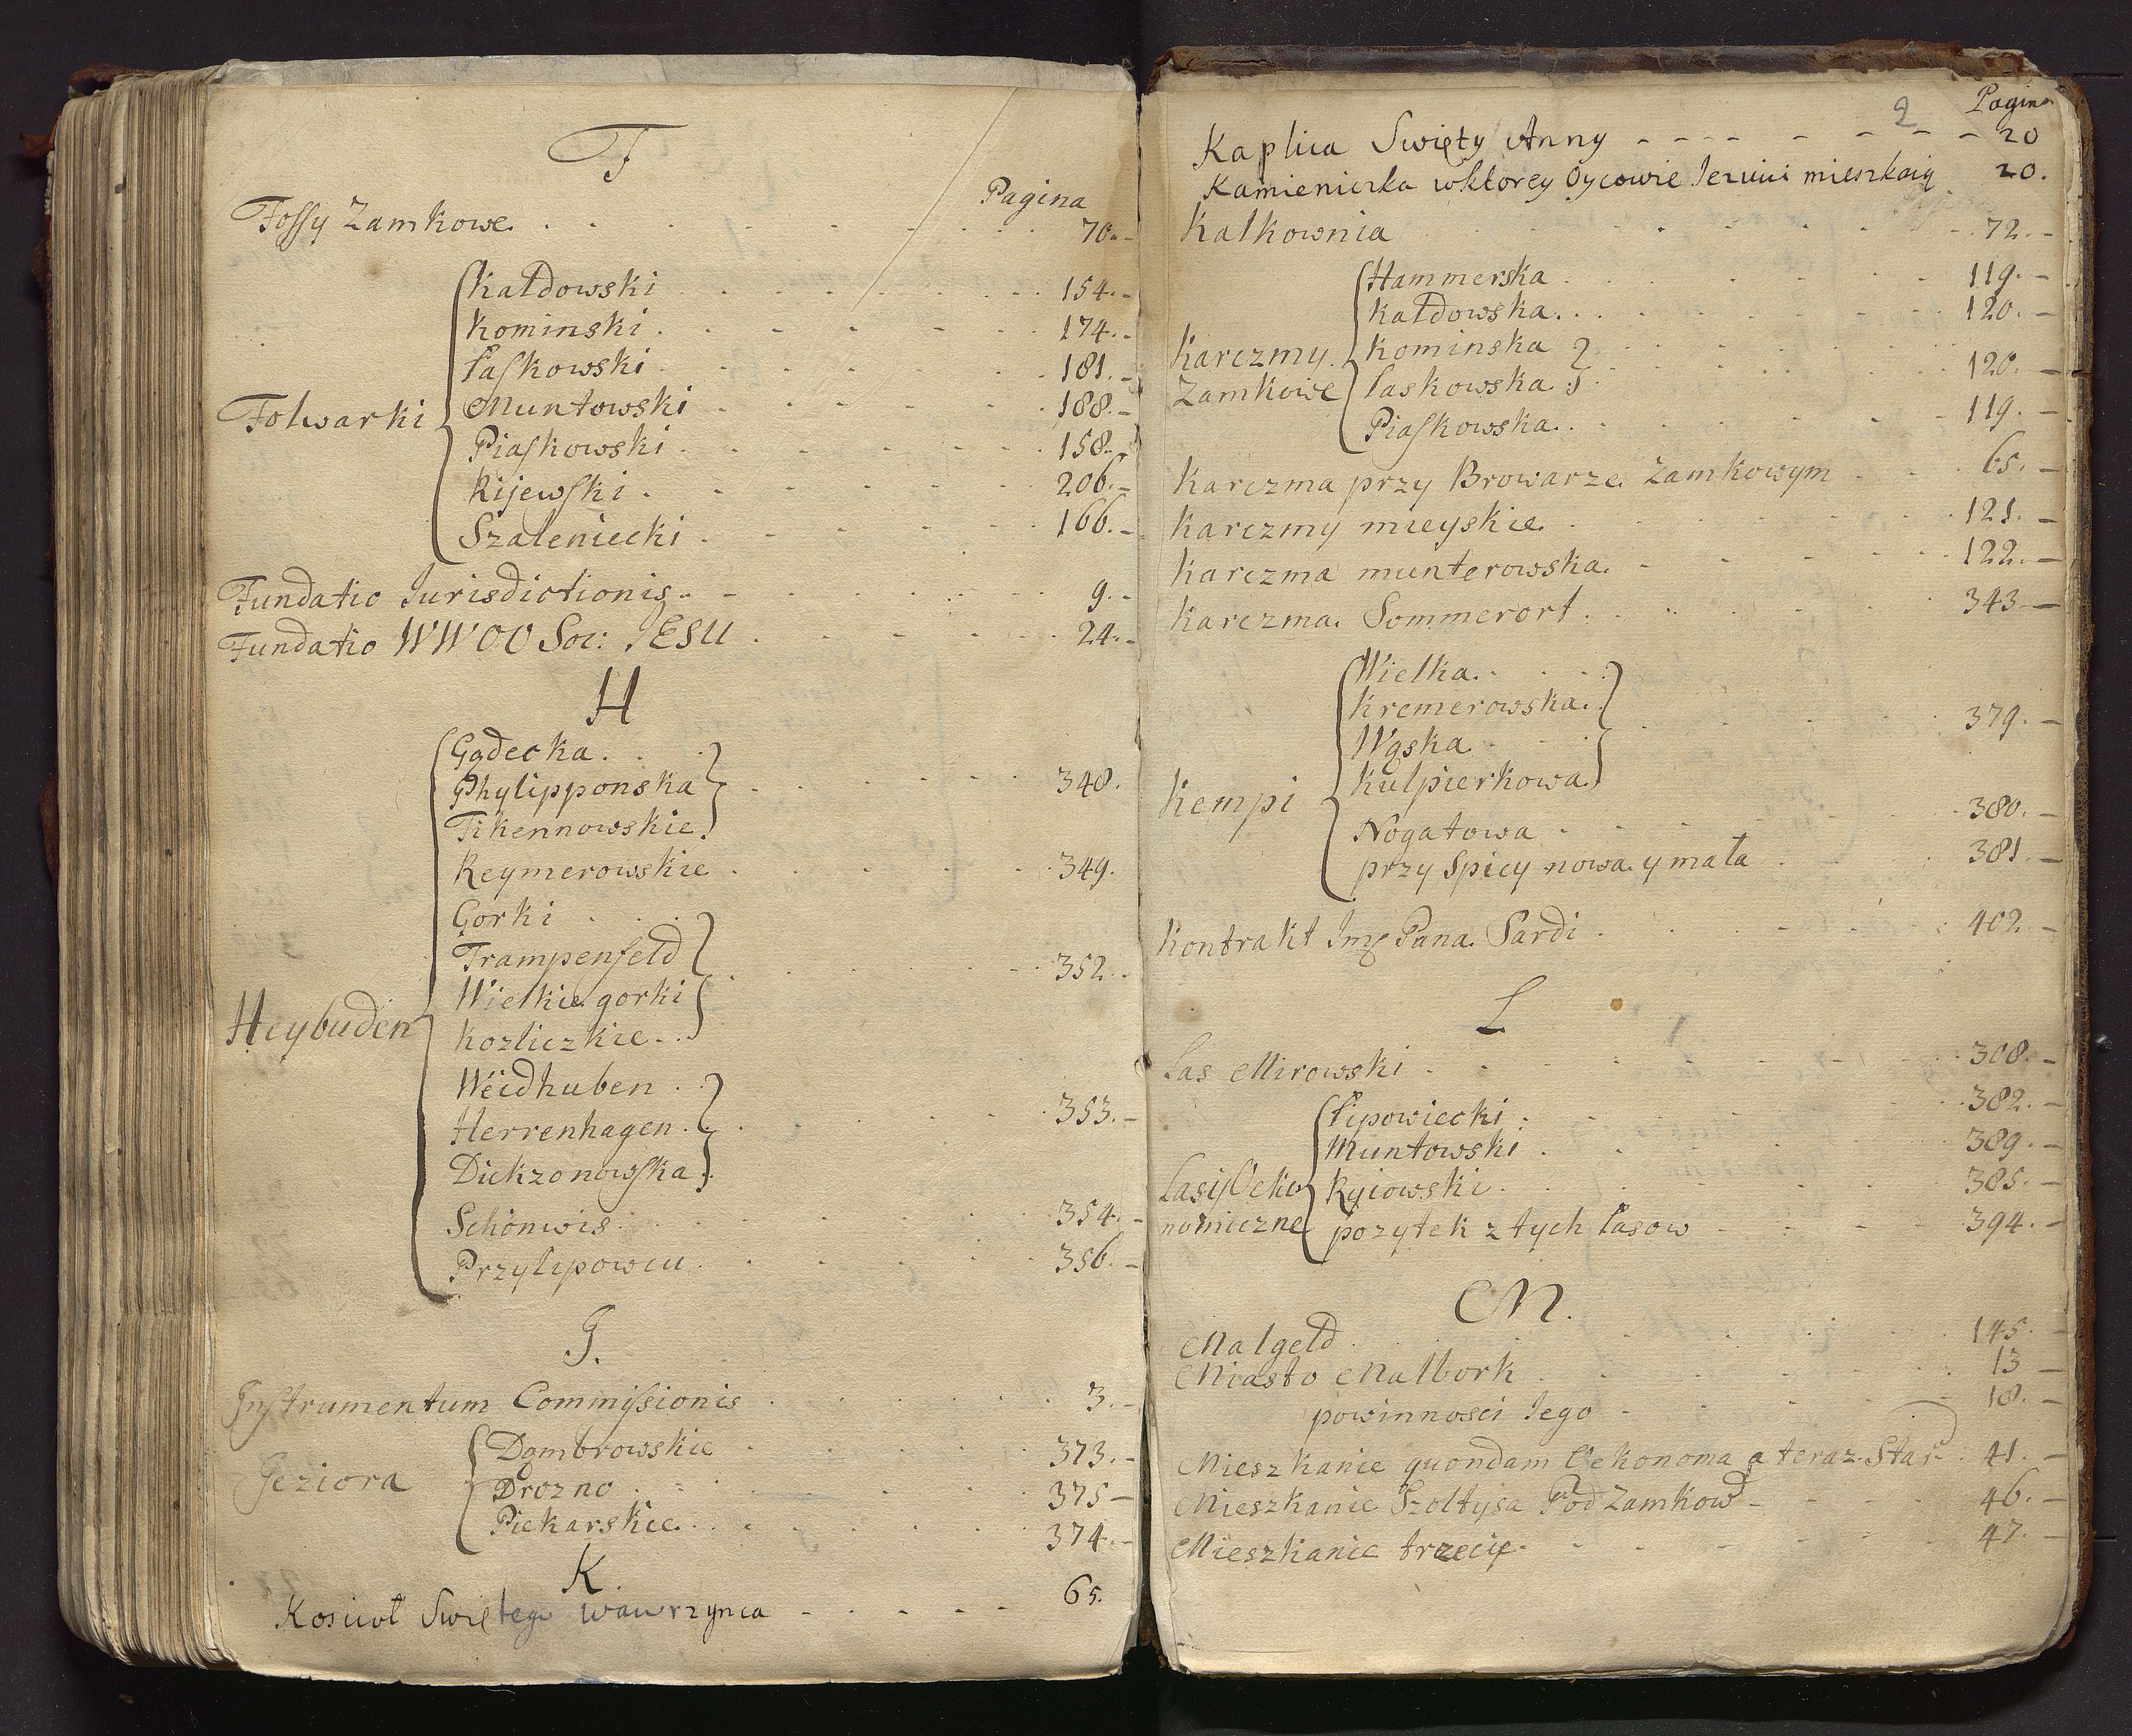 F
Pagina
Fossy Zamkowe. 70.
Kałdowski 154.
Kominski 174.
Łaskowski 181.
Folwarki Muntowski 188.
Piaskowski 158.
Kijewski 206.
Szaleniecki 166.
Fundatio Jurisdictionis 9.
Fundatio WWOO Soc: JESU 24.
H
Gądecka
Phylipponska 348.
Fikennowskie
Reymerowskie 349.
Gorki
Trampenfeld
352.
Wielkie gorki
Heybuden
Kozliczkie
Weidhuben
Herrenhagen 353.
Dickzonowska
Schönwis 354.
Przylipowcu 356.
J.
Instrumentum Commissionis 3.
Dąmbrowskie 373.
Jeziora Drozno 375
Piekarskie 374.
K.
Kosciol Swiętego Wawrzynca 65.
2 Pagina
Kaplica Swięty Anny 20
Kamieniczka wktorey Oycowie Jezuici mieszkaią 20.
Kalkownia 72.
Hammerska 119.
Kałdowska 120.
Karczmy Kominska
Zamkowe Łaskowska 120.
Piaskowska 119.
Karczma przy Browarze Zamkowym 65.
Karczmy mieyskie 121.
Karczma munterowska 122.
Karczma Sommerort 343
Wielka
Kremerowska
379.
Wąska
Kempi Kulpierkowa
Nogatowa 380.
przy Spicy nowa y mała 381.
Kontrakt Pana Sardi 402.
L
Las Mirowski 308.
Lipowiecki 382.
Muntowski 389.
Lasy Oeko Kyiowski 385.
nomiczne pozytek z tych Lasow 394.
M.
Malgeld 145.
Miasto Malbork 13
powinnosci Jego 18.
Mieszkanie quondam Oekonoma a teraz Star 41.
Mieszkanie Szołtysa Pod Zamkow 46.
Mieszkanie trzecie 47.